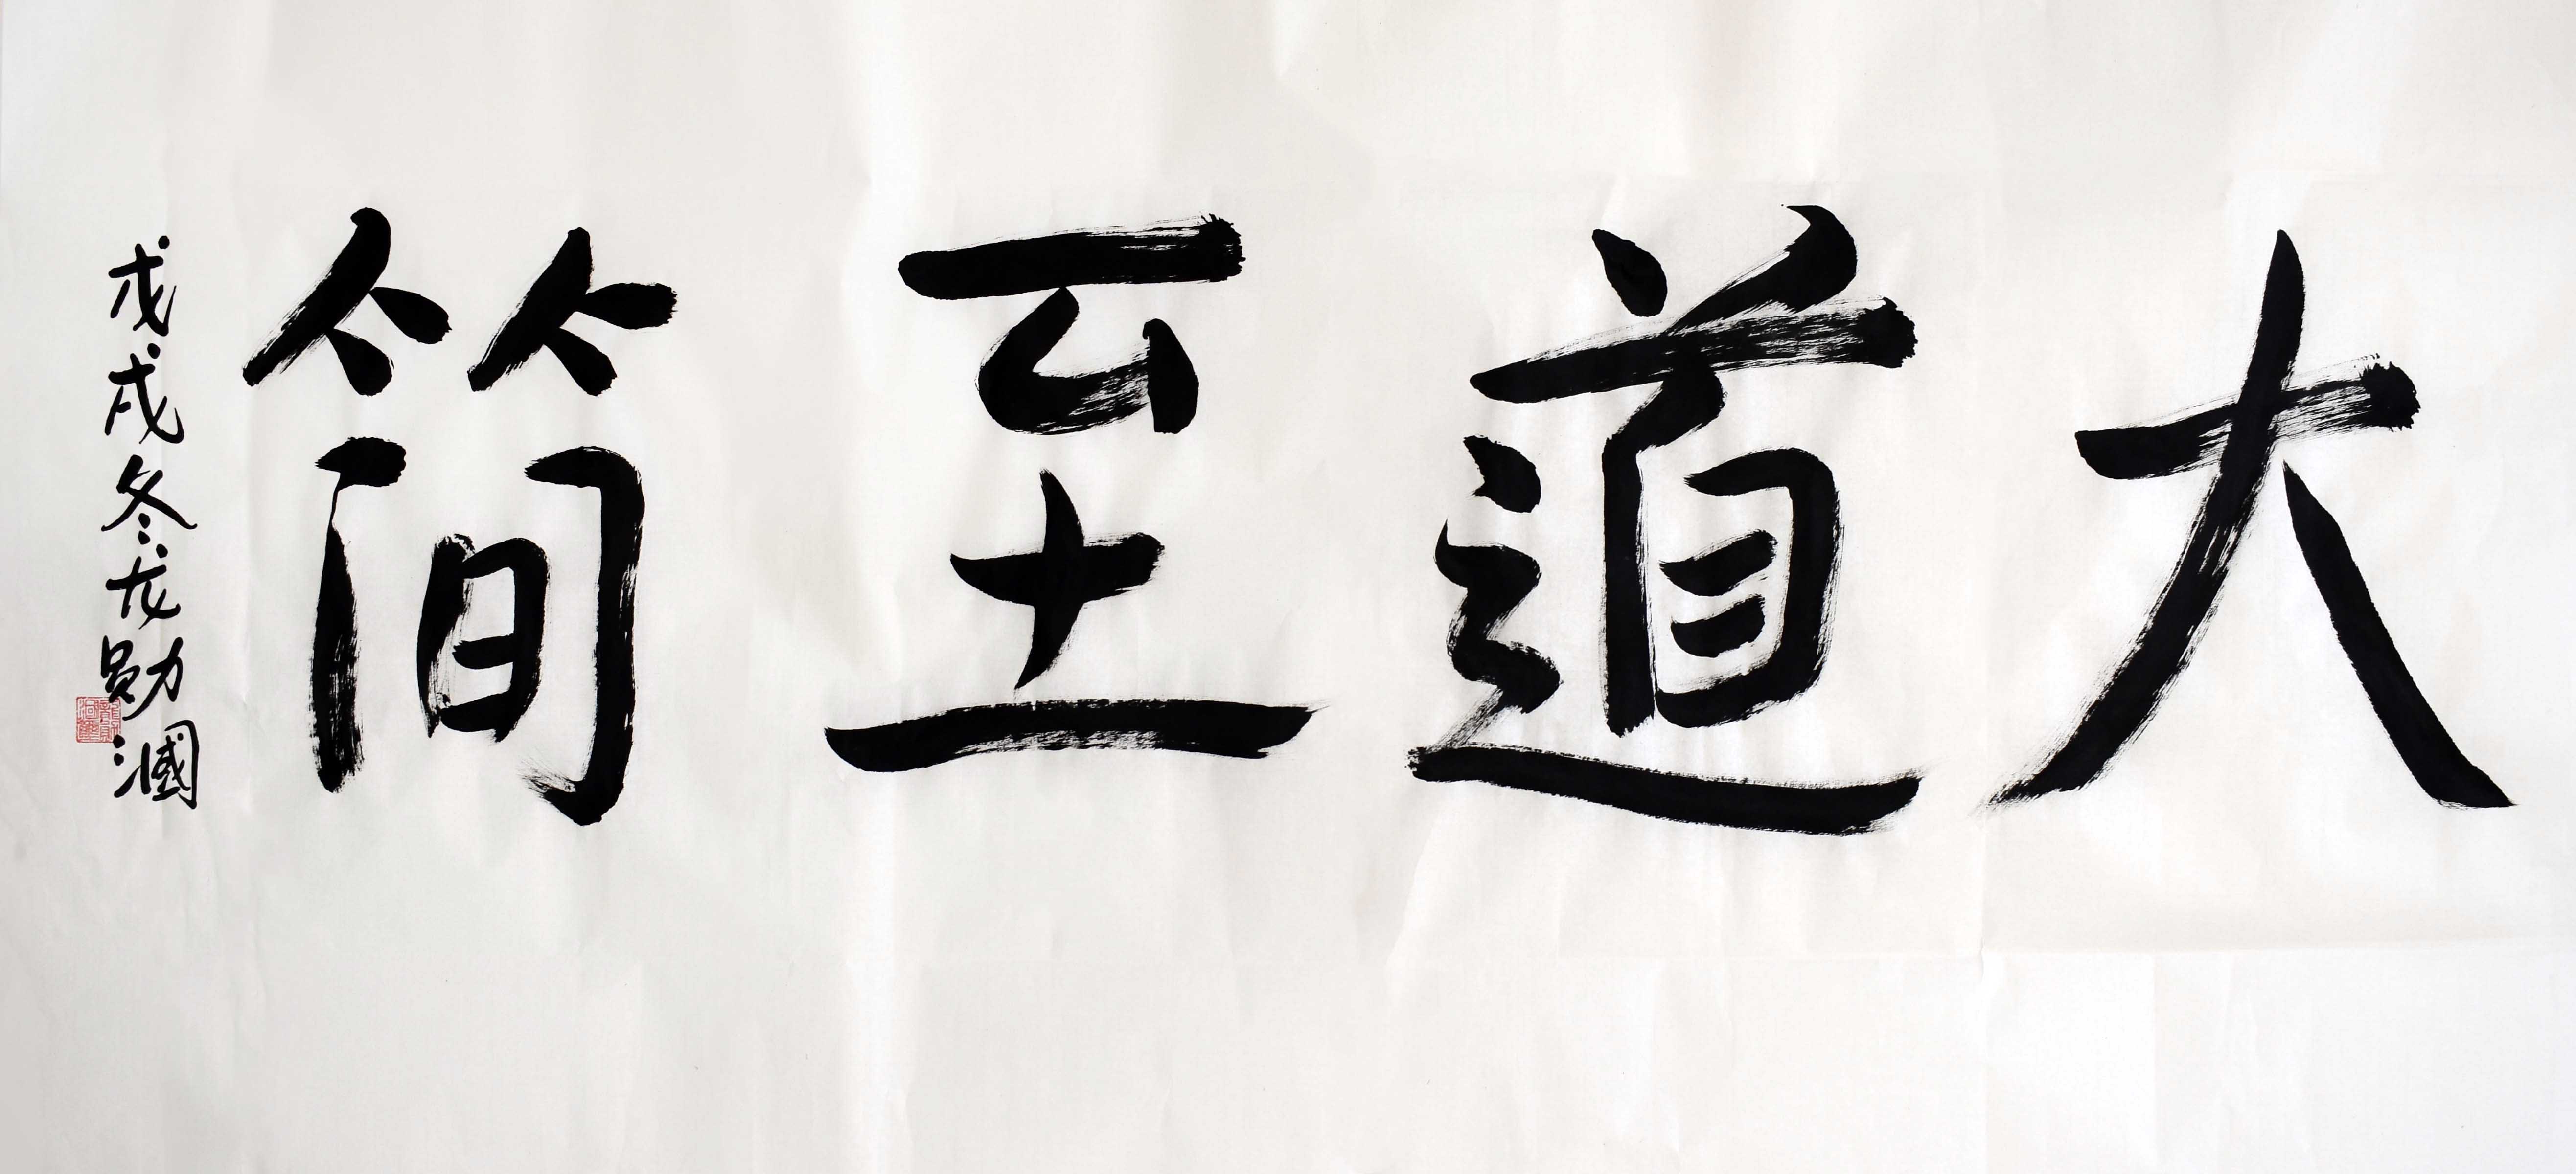 大道至简
戊戌冬龙勋